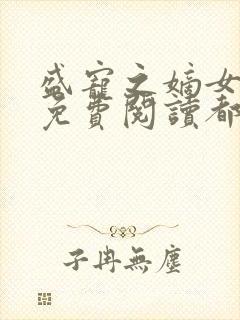 盛寵之嫡女
免費閱讀都
子冉無塵